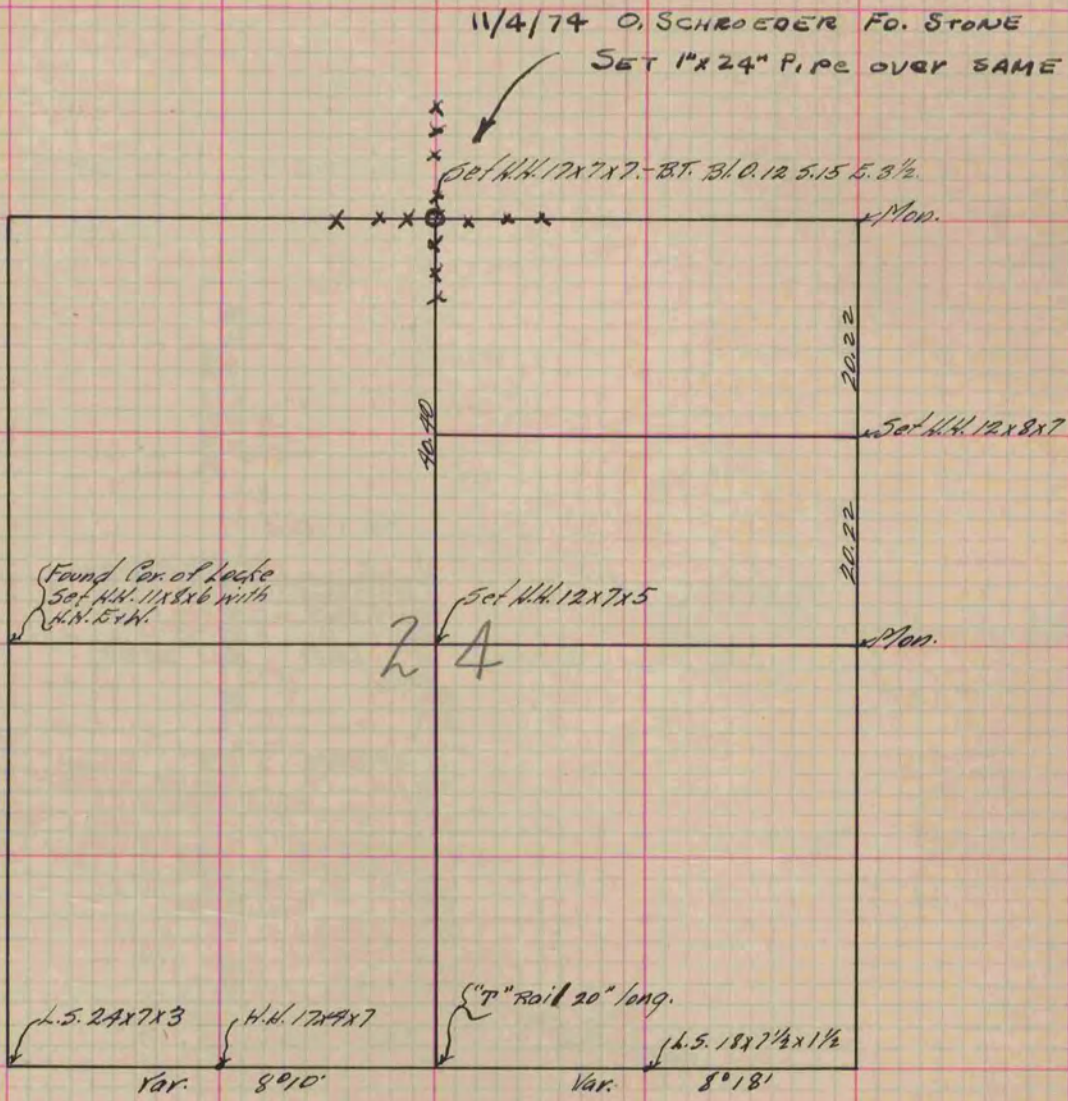 11/4/74 O. SCHROEDER FO. STONE
SET 1"x24" PIPE OVER SAME
Set H.H. 17x7x7.-B.T. Bl.O. 12 S.15 E. 3½.
Mon.
20.22
40.40
Set H.H. 12x8x7
20.22
Found Cor. of Locke
Set H.H. 11x8x6 with
H.H. E+W.
Set H.H. 12x7x5
Mon.
24
"T" Rail 20" long.
L.S. 24x7x3
H.H. 17x4x7
L.S. 18x7½x1½
Var. 8°10'
Var. 8°18'